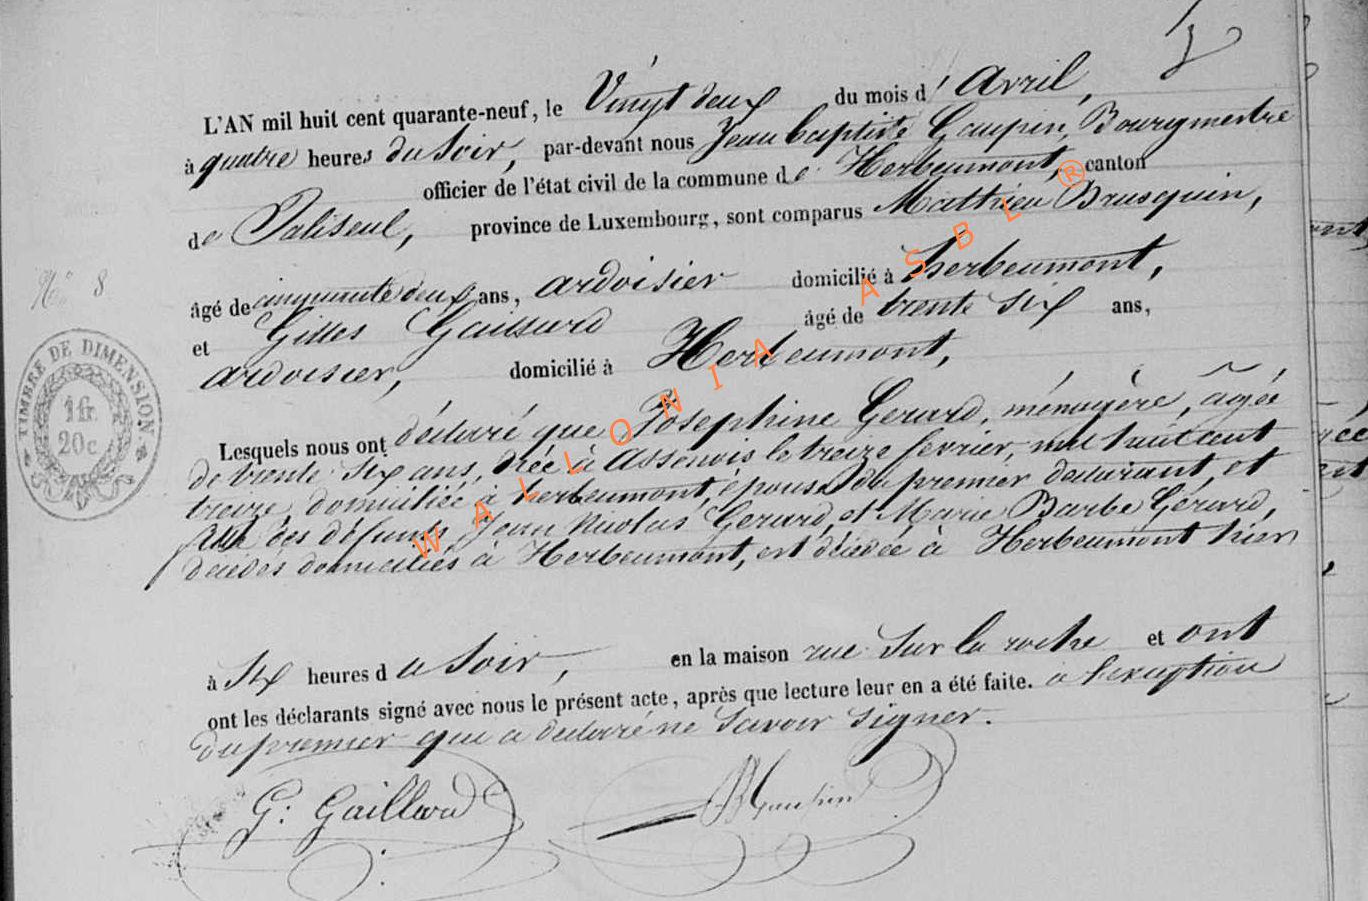 L'AN mil huit cent quarante-neuf, le Vingt deux du mois d'Avril,
à quatre heures du Soir, par-devant nous Jean baptiste Gaupin, Bourgmestre
officier de l'état civil de la commune de Herbeumont, canton
de Paliseul, province de Luxembourg, sont comparus Mathieu Brusquin,
âgé de cinquante deux ans, ardoisier domicilié à herbeumont,
et Gilles Gaillard âgé de trente six ans,
ardoisier, domicilié à Herbeumont,
Lesquels nous ont déclaré que Josephine Gerard, ménagère, agée
de trente six ans, née à Assenois le treize fevrier, mil huit cent
treize, domiciliée à herbeumont, épouse du premier declarant, et
fille des défunts, Jean Nicolas Gerard, et Marie Barbe Gérard,
décédés domiciliés à Herbeumont, est décédée à Herbeumont hier
à Six heures du Soir, en la maison rue Sur la roche et ont
ont les déclarants signé avec nous le présent acte, après que lecture leur en a été faite. à l'exception
du premier qui a declaré ne Savoir Signer.
G. Gaillard
N° 8
TIMBRE DE DIMENSION.
1 fr.
20c
WALLONIA ASBL ®